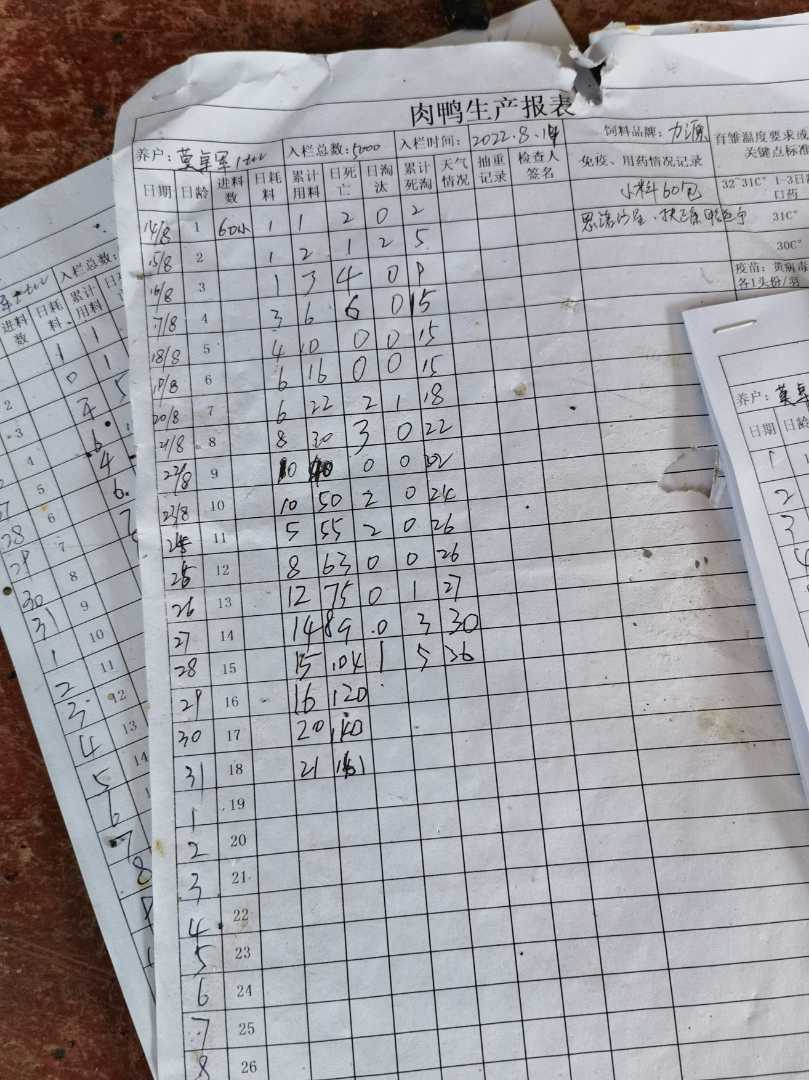 肉鸭生产报表
养户: 莫卓军 入栏总数: 5000 入栏时间: 2022.8.14 饲料品牌: 力源 首雏温度要求或
关键点标准
日期 日龄 进料数 日耗料 累计用料 日死亡 日淘汰 累计死淘 天气情况 抽重记录 检查人签名 免疫、用药情况记录
小料60包 32~31C° 1-3日
口药
14/8 1 60小 1 1 2 0 2 31C°
15/8 2 1 2 1 2 5 30C°
16/8 3 1 3 4 0 9 疫苗: 黄病毒
各1头份/羽
17/8 4 3 6 6 0 15
18/8 5 4 10 0 0 15
19/8 6 6 16 0 0 15
20/8 7 6 22 2 1 18
21/8 8 8 30 3 0 22
22/8 9 10 40 0 0 22
23/8 10 10 50 2 0 24
24 11 5 55 2 0 26
25 12 8 63 0 0 26
26 13 12 75 0 1 27
27 14 14 89 0 3 30
28 15 15 104 1 5 36
29 16 16 120
30 17 20 140
31 18 21 161
1 19
2 20
3 21
4 22
5 23
6 24
7 25
8 26
入栏总数:
进料数 日耗料 累计用料
1 1
2 0 1
3
4
5
28 6
29 7
30 8
31 9
1 10
2 11
3 12
4 13
5 14
6
7
8
养户: 莫卓
日期 日龄
1
2
3
4